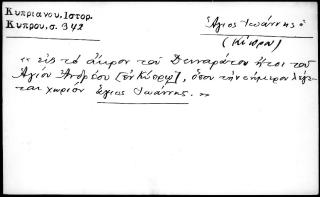 Κυπριανου. Ιστορ.
Κυπρου, σ. 342
Ἅγιος Ἰωάννης ὁ
(Κύπρου)
« εἰς τὸ ἄκρον τοῦ Δειναρέτου ἤτοι τοῦ
Ἁγίου Ἀνδρέου [ἐν Κύπρῳ], ὅπου τὴν σήμερον λέγε-
ται χωρίον ἅγιος Ἰωάννης. »